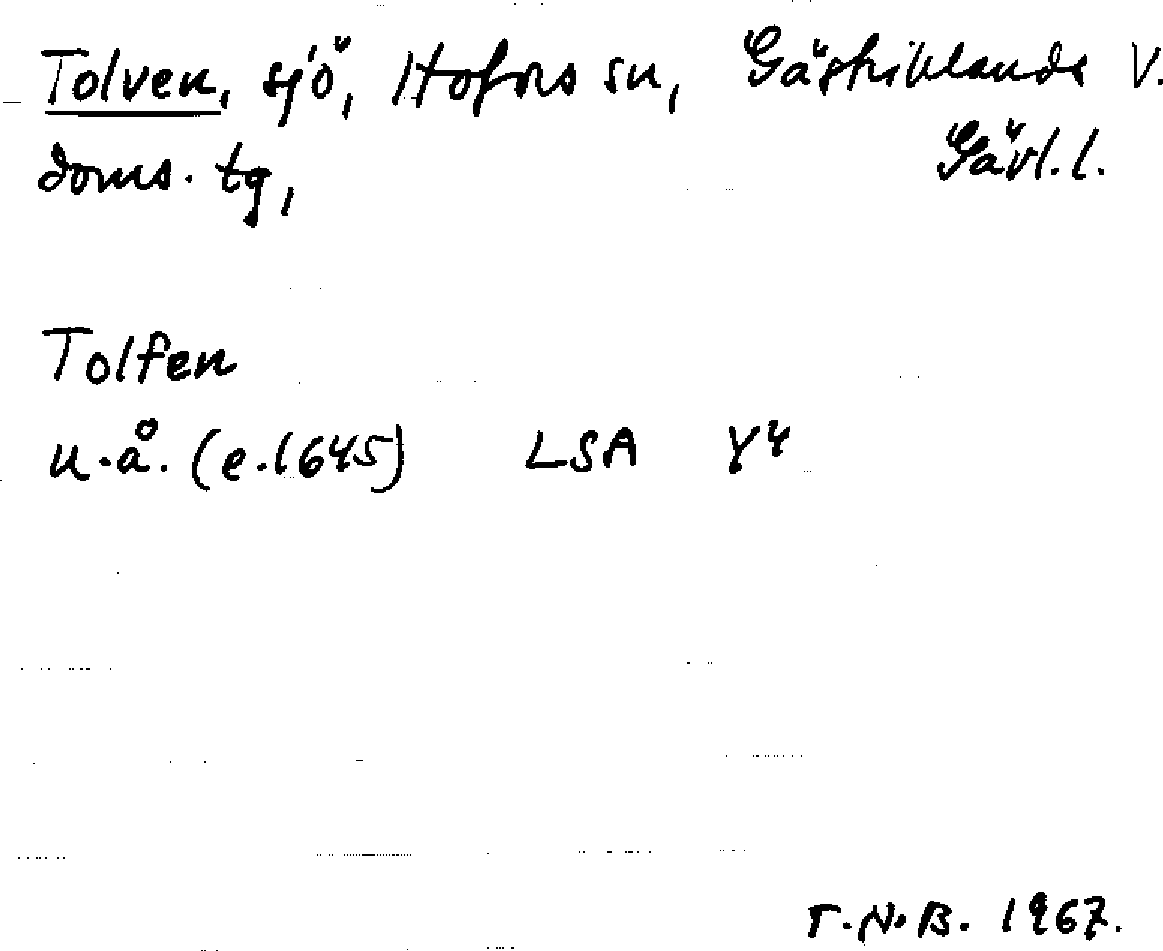 Tolven, sjö, Hofors sn, Gästriklands V.
doms. tg, Gävl. l.
Tolfen
u.å. (e. 1645) LSA Y4
T.N.B. 1967.